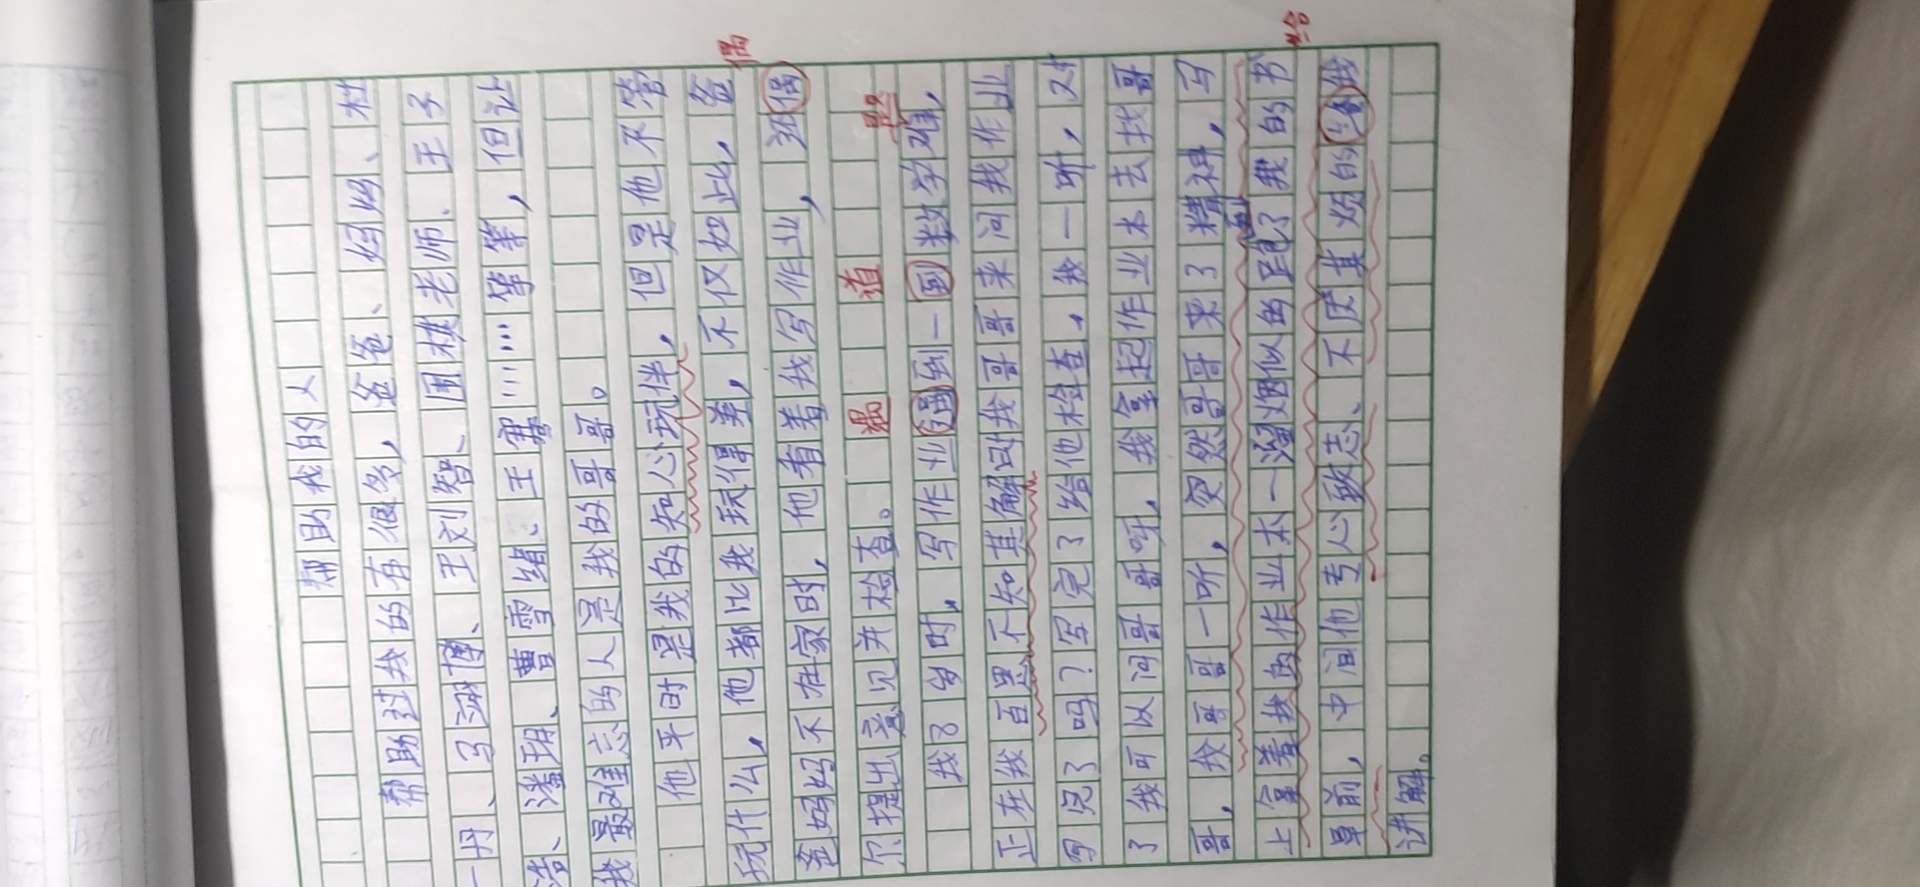 帮助我的人
帮助过我的有很多，爸爸、妈妈、杜
一丹、马淑博、王刘智、围棋老师、王子
浩、潘玥、曹雪绪、王霏……等等，但让
我最难忘的人是我的哥哥。
他平时是我的知心玩伴，但是他不管
玩什么，他都比我玩得差，不仅如此，爸
偶
爸妈妈不在家时，他看着我写作业，还偶
尔提出意见并检查。
遇 道 题
我8岁时，写作业遇到一到数学难，
正在我百思不知其解时我哥哥来问我作业
写完了吗？写完了给他检查。我一听，对
了我可以问哥哥呀，我拿起作业本去找哥
哥，我哥哥一听，突然哥哥来了精神，马
上拿着我的作业本一溜烟似的跑到了我的书
给
桌前，中间他专心致志、不厌其烦的给我
讲解。